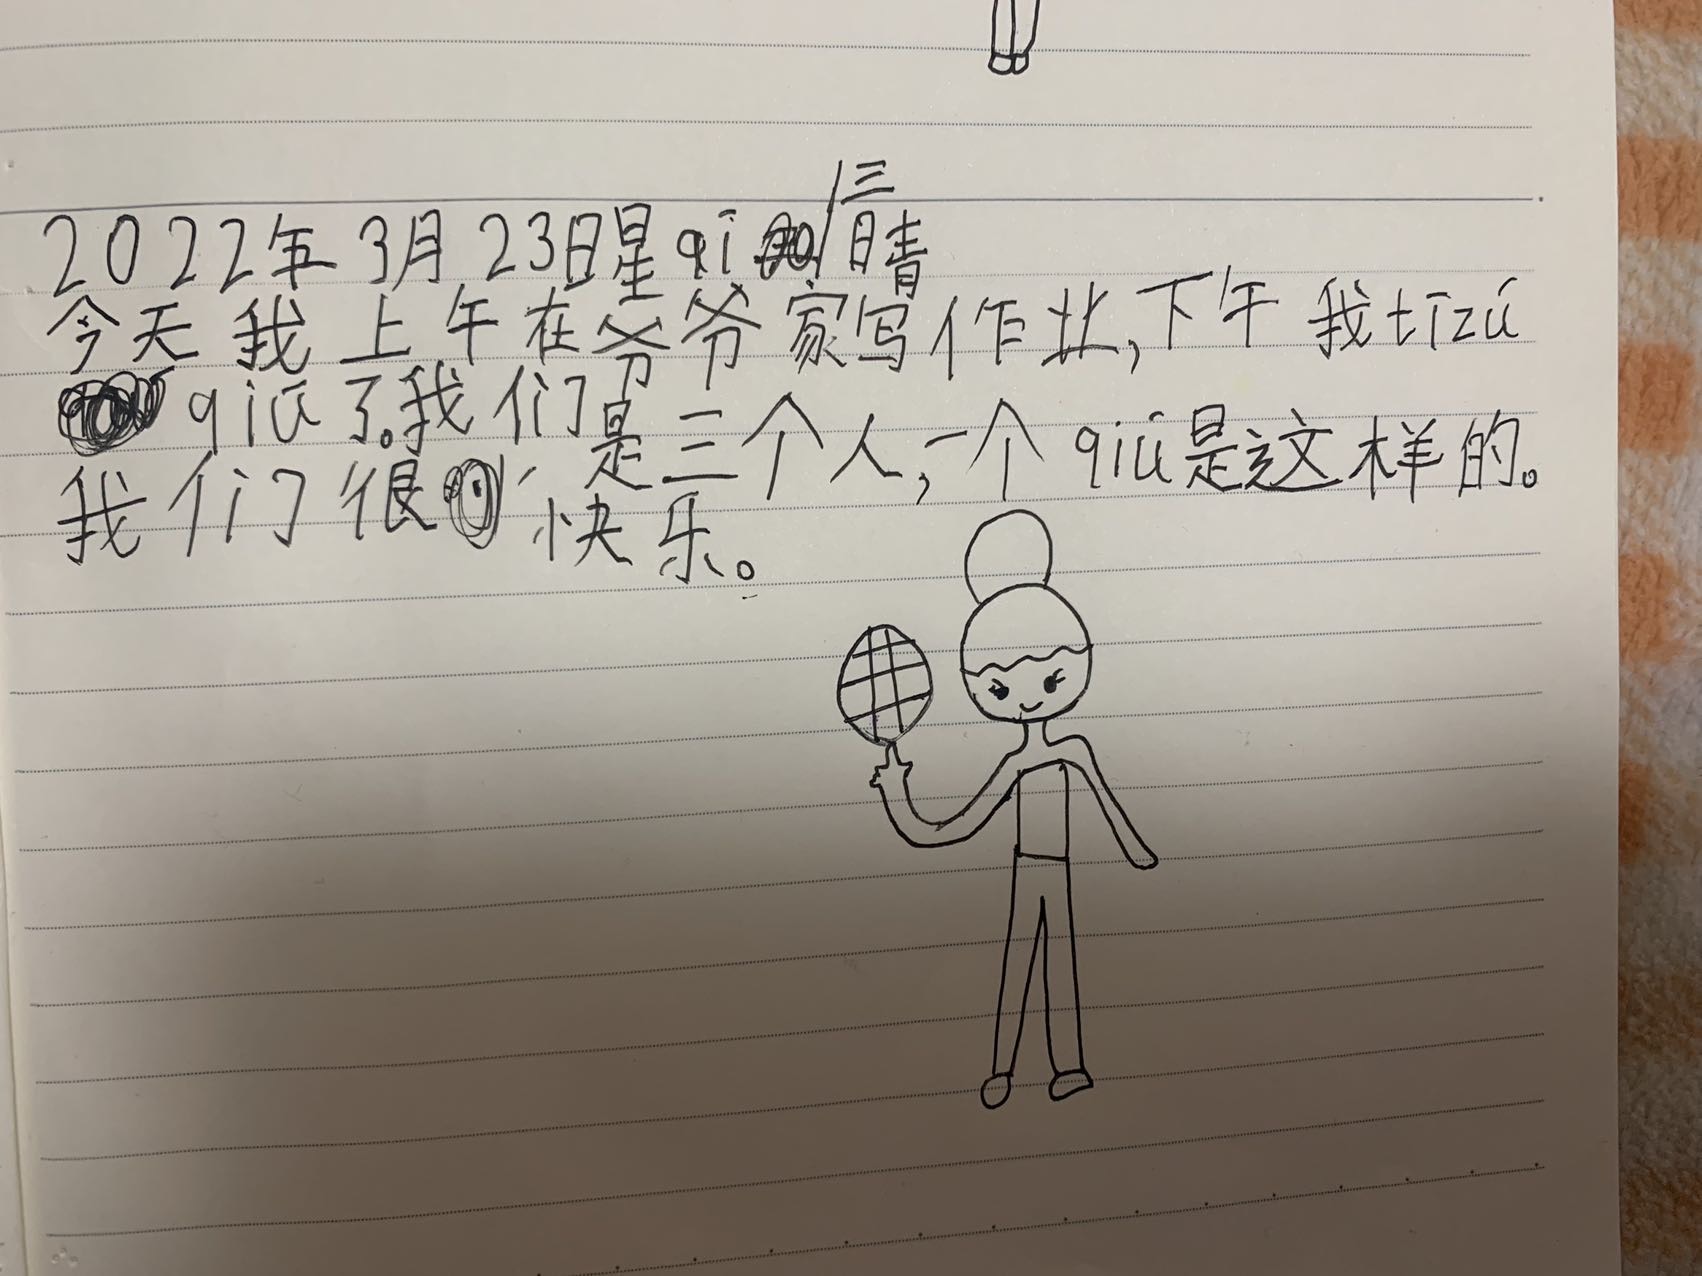 2022年3月23日星qī三 晴
今天我上午在爷爷家写作业,下午我tīzú
qiú了。我们是三个人,一个qiú是这样的。
我们很快乐。